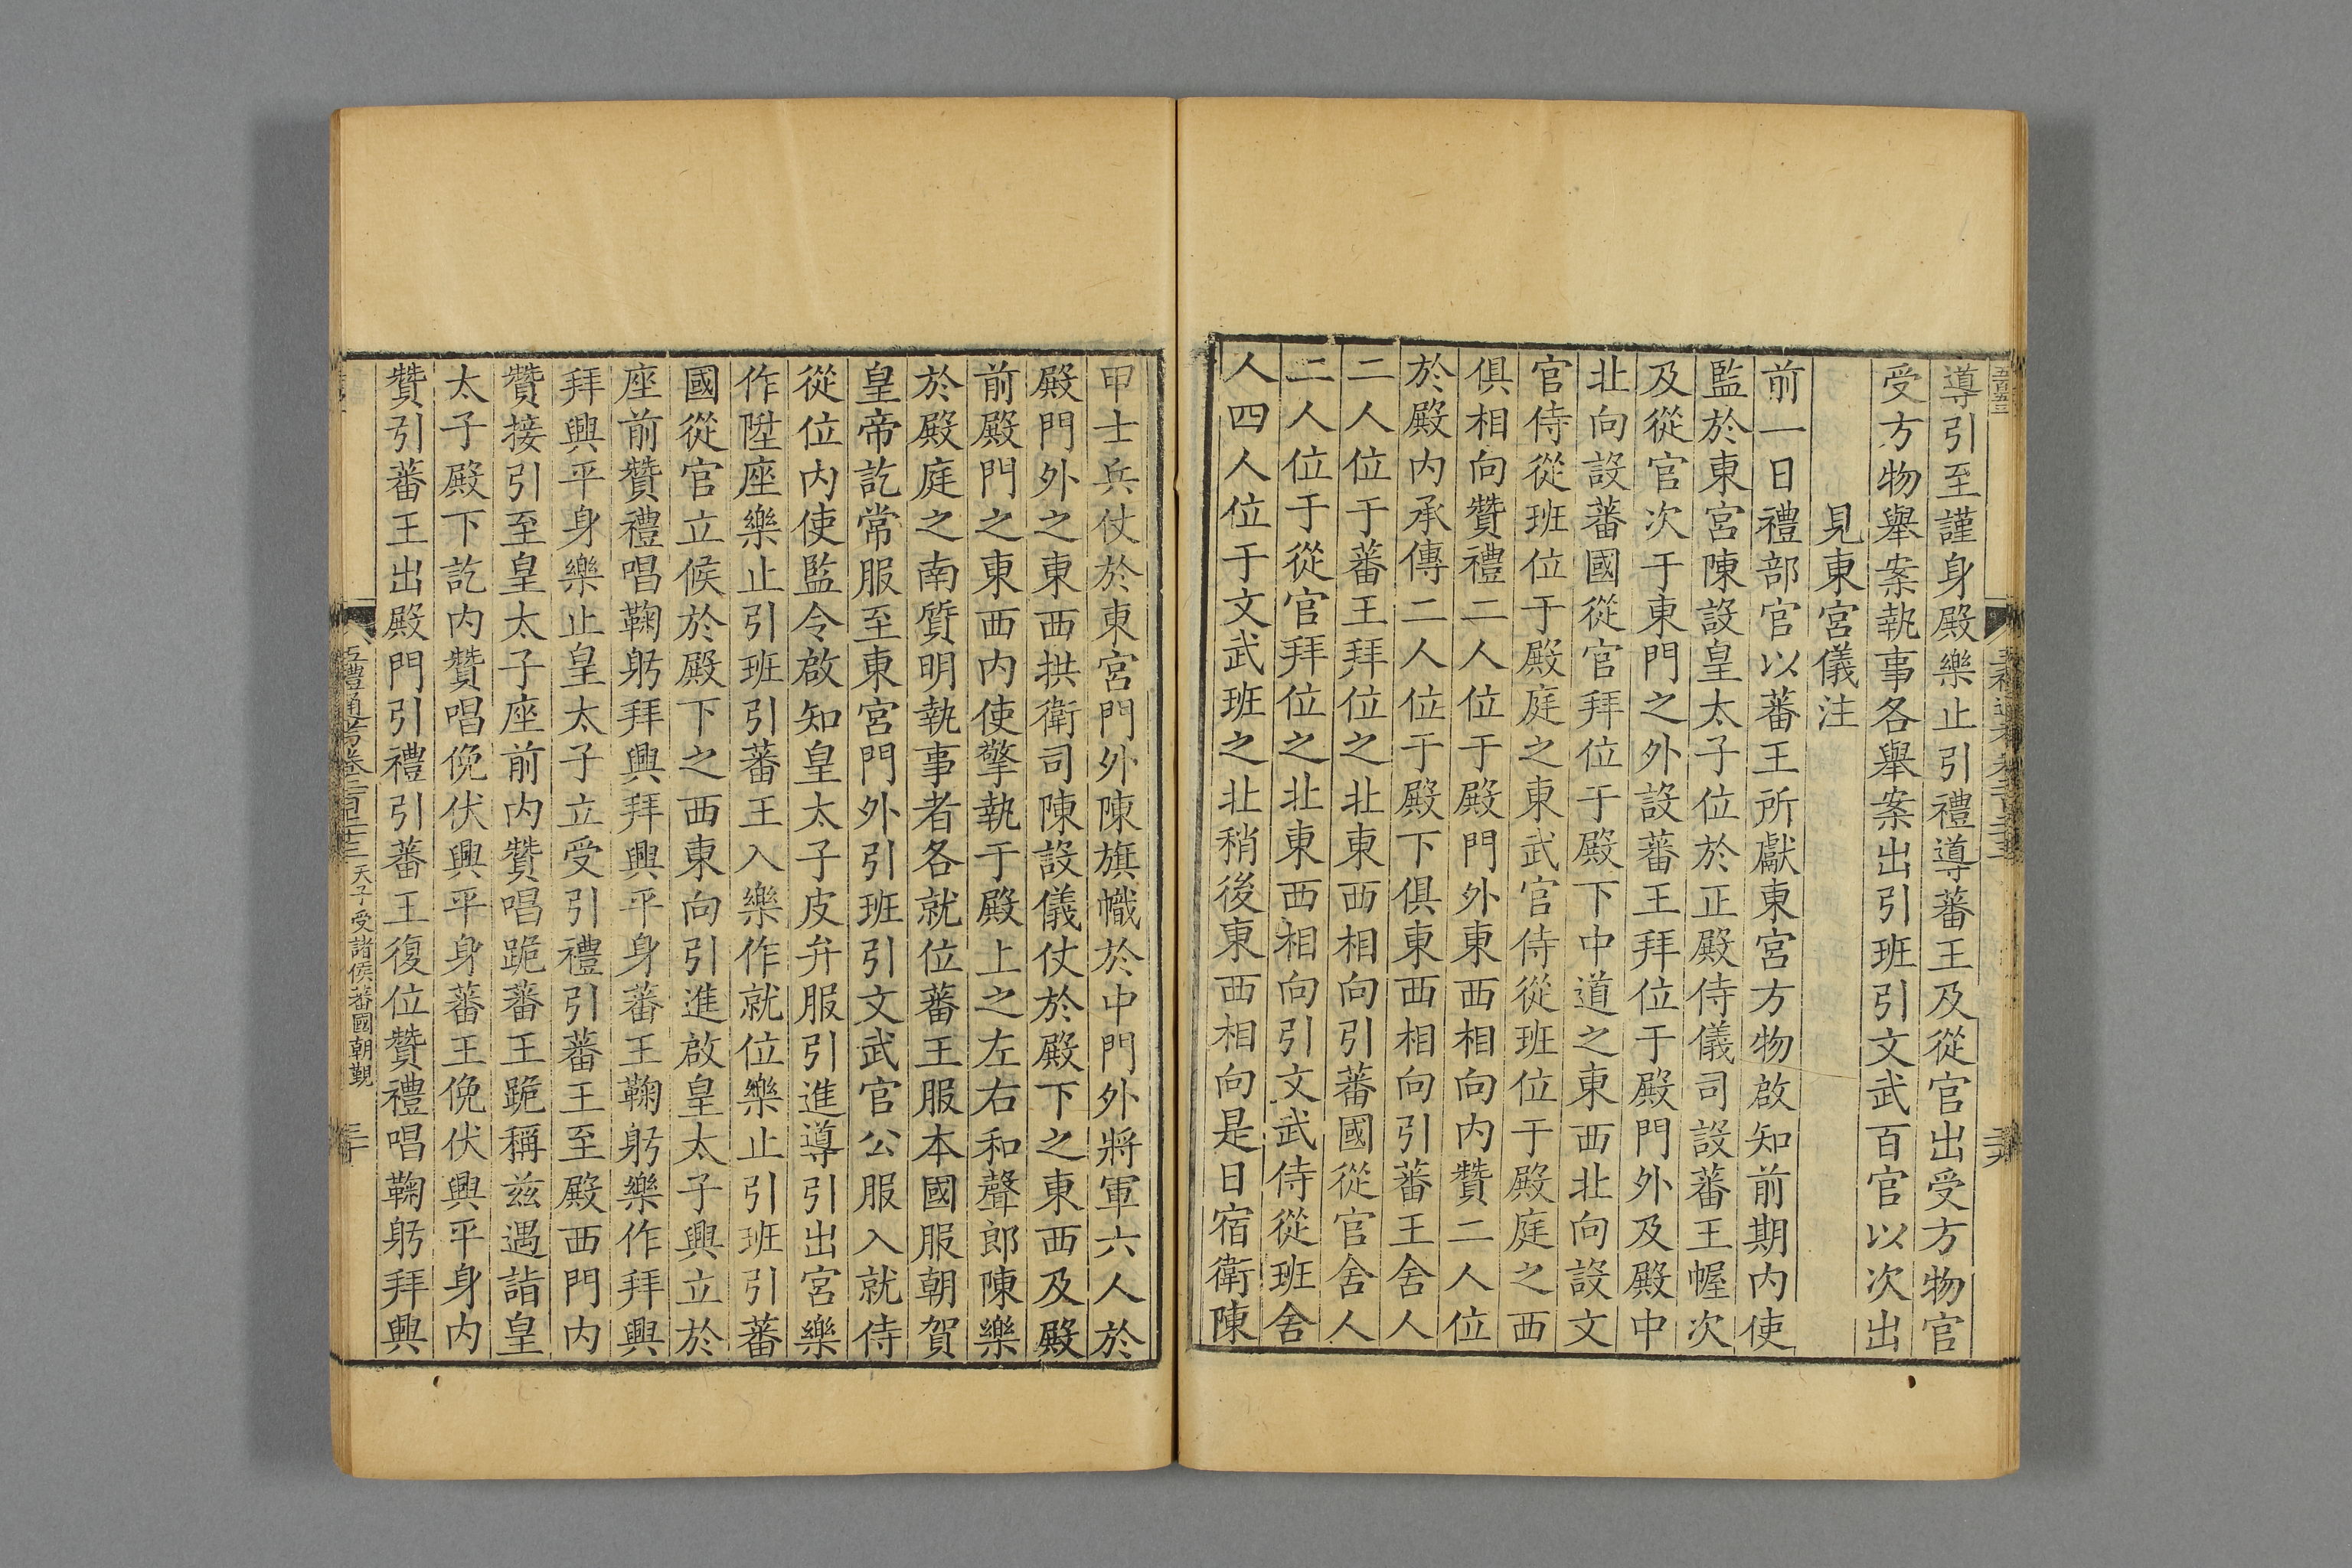 導引至謹身殿樂止引禮導蕃王及從官出受方物官
受方物舉案執事各舉案出引班引文武百官以次出
見東宮儀注
前一日禮部官以蕃王所獻東宮方物啟知前期内使
監於東宮陳設皇太子位於正殿侍儀司設蕃王幄次
及從官次于東門之外設蕃王拜位于殿門外及殿中
北向設蕃國從官拜位于殿下中道之東西北向設文
官侍從班位于殿庭之東武官侍從班位于殿庭之西
俱相向贊禮二人位于殿門外東西相向内贊二人位
於殿内承傳二人位于殿下俱東西相向引蕃王舍人
二人位于蕃王拜位之北東西相向引蕃國從官舍人
二人位于從官拜位之北東西相向引文武侍從班舍
人四人位于文武班之北稍後東西相向是日宿衛陳
甲士兵仗於東宮門外陳旗幟於中門外將軍六人於
殿門外之東西拱衛司陳設儀仗於殿下之東西及殿
前殿門之東西内使擎執于殿上之左右和聲郎陳樂
於殿庭之南質明執事者各就位蕃王服本國服朝賀
皇帝訖常服至東宮門外引班引文武官公服入就侍
從位内使監令啟知皇太子皮弁服引進導引出宮樂
作陞座樂止引班引蕃王入樂作就位樂止引班引蕃
國從官立候於殿下之西東向引進啟皇太子興立於
座前贊禮唱鞠躬拜興拜興平身蕃王鞠躬樂作拜興
拜興平身樂止皇太子立受引禮引蕃王至殿西門内
贊接引至皇太子座前内贊唱跪蕃王跪稱兹遇詣皇
太子殿下訖内贊唱俛伏興平身蕃王俛伏興平身内
贊引蕃王出殿門引禮引蕃王復位贊禮唱鞠躬拜興
五禮通考卷二百二十三 天子受諸侯蕃國朝覲